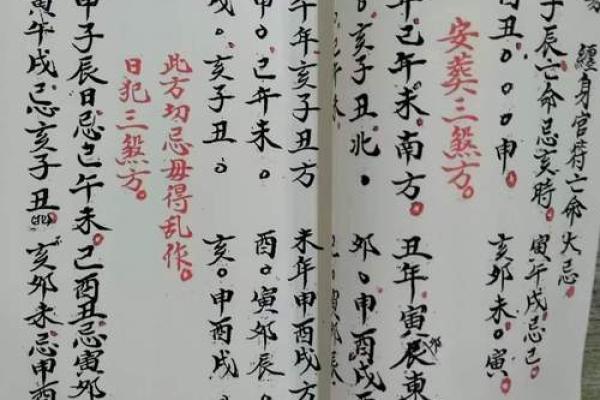 纏身官符亡命火忌
子辰亡命忌亥時。寅午戌忌己。
酉丑。。。申。亥卯未。寅。
安葬三煞方。
年。己午未。南方。丑年。寅卯辰東
。亥子丑北。卯。申酉戌西
午年。亥子丑方 未年申酉戌方
申。己午未。酉。寅卯辰。
戌。亥子丑。亥。申酉戌。
此方切忌毋得乱作。
日犯三煞方。
申子辰日忌己午未。己酉丑忌寅卯
寅午戌忌亥子丑。(北)亥卯未忌申酉